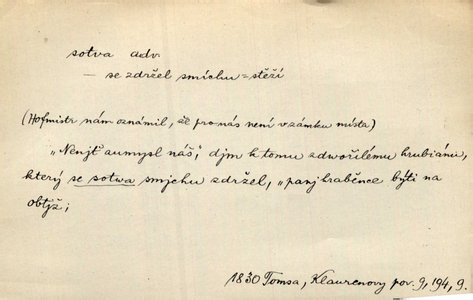 sotva adv.
— se zdržel smíchu = stěží
(Hofmistr nám oznámil, že pro nás není v zámku místa)
„Nenjť aumysl náš", djm k tomu zdwořilému hrubiánu,
který se sotwa smjchu zdržel, „panj hraběnce býti na
obtjž;
1830 Tomsa, Klaurenovy pov. 9, 194, 9.